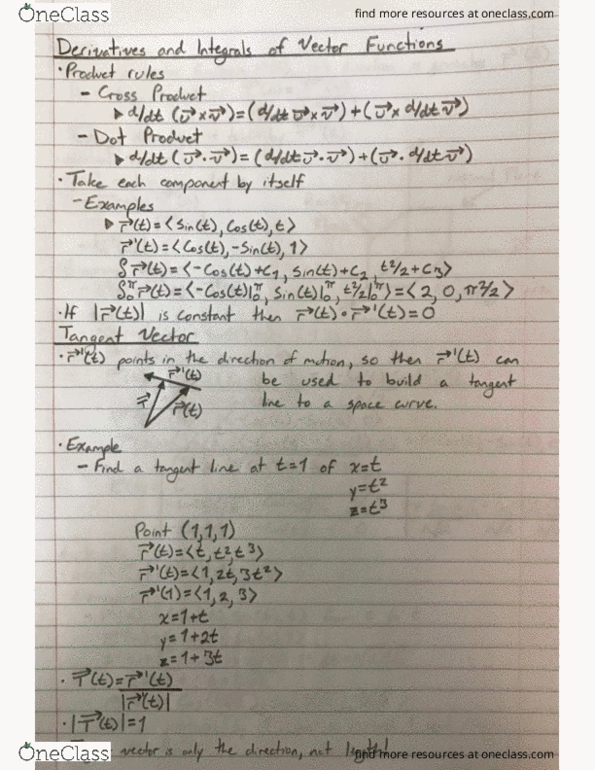 OneClass
find more resources at oneclass.com
Derivatives and Integrals of Vector Functions
· Product rules
- Cross Product
▶ d/dt (u⃗ × v⃗) = (d/dt u⃗ × v⃗) + (u⃗ × d/dt v⃗)
- Dot Product
▶ d/dt (u⃗ · v⃗) = (d/dt u⃗ · v⃗) + (u⃗ · d/dt v⃗)
· Take each component by itself
- Examples
▶ r⃗(t) = <Sin(t), Cos(t), t>
r⃗'(t) = <Cos(t), -Sin(t), 1>
∫ r⃗(t) = <-Cos(t)+C₁, Sin(t)+C₂, t²/2+C₃>
∫₀^π r⃗(t) = <-Cos(t)|₀^π, Sin(t)|₀^π, t²/2|₀^π> = <2, 0, π²/2>
· If |r⃗(t)| is constant then r⃗(t) · r⃗'(t) = 0
Tangent Vector
· r⃗'(t) points in the direction of motion, so then r⃗'(t) can
be used to build a tangent
line to a space curve.
r⃗'(t)
r⃗(t)
· Example
- Find a tangent line at t=1 of x=t
y=t²
z=t³
Point (1,1,1)
r⃗(t) = <t, t², t³>
r⃗'(t) = <1, 2t, 3t²>
r⃗'(1) = <1, 2, 3>
x=1+t
y=1+2t
z=1+3t
· T⃗(t) = r⃗'(t)
|r⃗'(t)|
· |T⃗(t)| = 1
vector is only the direction, not
OneClass
find more resources at oneclass.com